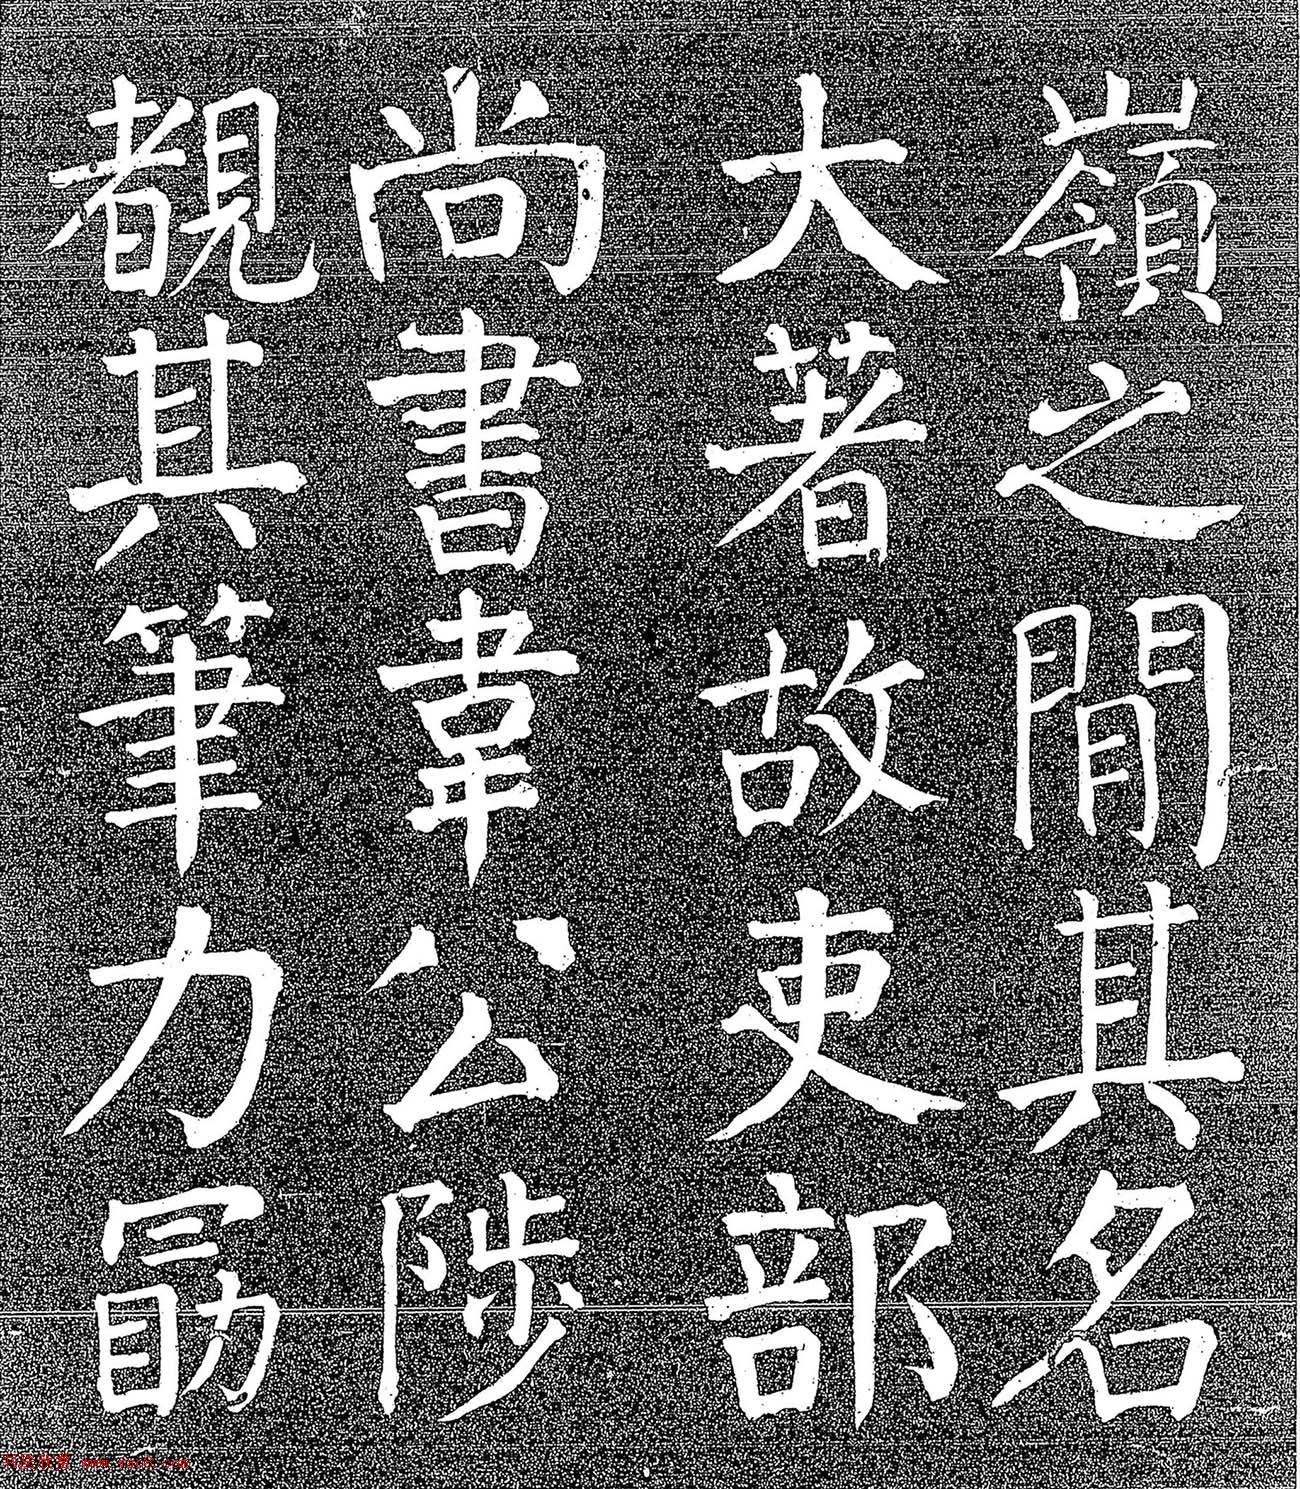 嶺之閒其名
大著故吏部
尚書韋公陟
覩其筆力勗
书法欣赏 www.yac8.com